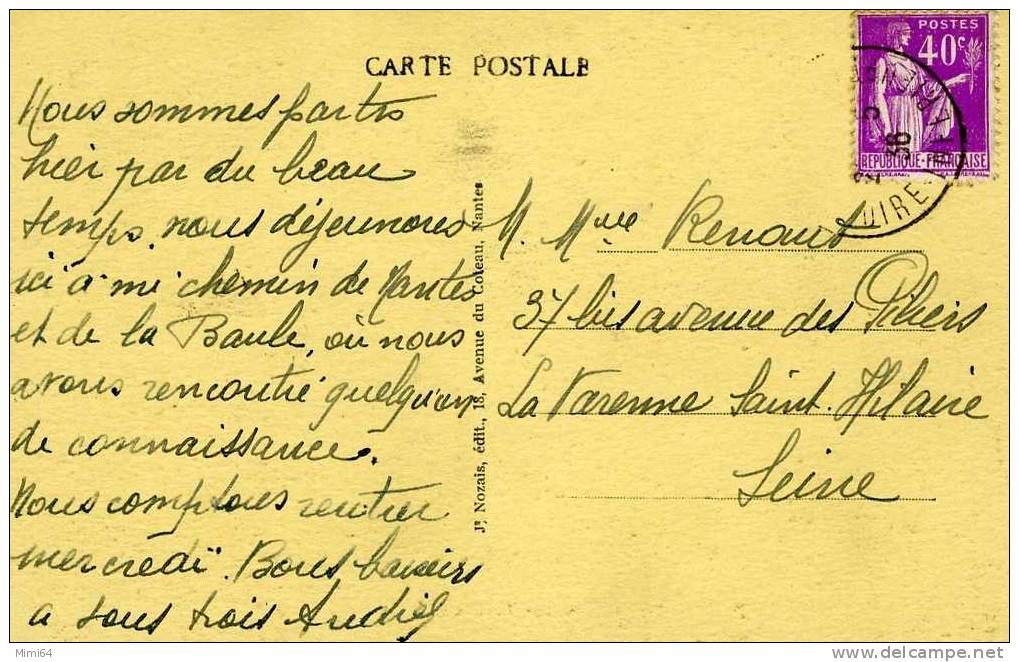 CARTE POSTALE
Nous sommes partis
hier par du beau
temps, nous déjeunons
ici à mi chemin de Nantes
et de la Baule, où nous
avons rencontré quelqu'un
de connaissance.
Nous comptons rentrer
mercredi. Bons baisers
a tous trois
Jh Nozais, édit., 18, Avenue du Coteau, Nantes
POSTES
40c
REPUBLIQUE-FRANÇAISE
36
M. Mme Renaut
37 bis avenue des Piliers
La Varenne Saint. Hilaire
Seine
Mimi64
www.delcampe.net